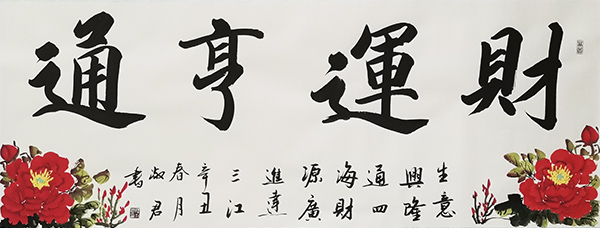 財運亨通
生意
興隆
通四
海財
源廣
進達
三江
辛丑
春月
淑君
書